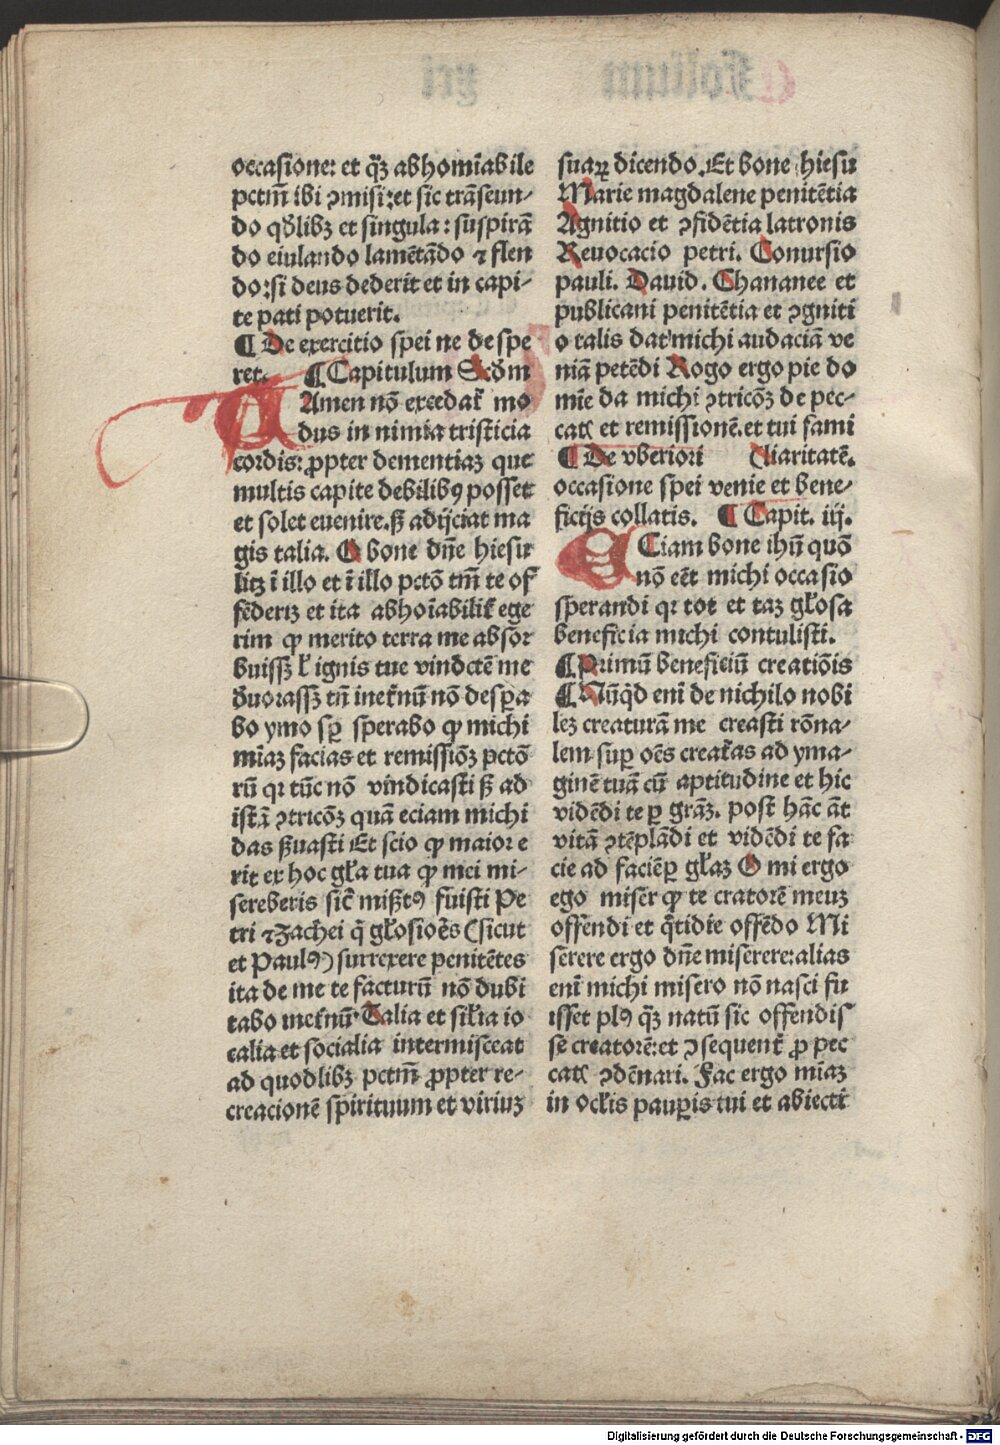 occasione: et q̈ꝫ abhomīabile
pctm̄ ibi ꝯmisi: et sic trāseun⸗
do qd̛libꝫ et singula: suspirā
do eiulando lamētādo ⁊ flen
do: si deus dederit et in capi⸗
te pati potuerit.
¶ De exercitio spei ne despe
ret. ¶ Capitulum Scd̛m
TAmen nō excedat᷑ mo
dus in nimia tristicia
cordis: ꝓpter dementiaꝫ que
multis capite debilibꝰ posset
et solet euenire. sꝫ adijciat ma
gis talia. O bone dn̄e hiesu
licꝫ ī illo et ī illo pctō tm̄ te of
fēderiꝫ et ita abhoīabilit᷑ ege
rim ꝙ merito terra me absor
buissꝫ ł ignis tue vindctē me
d̛uorassꝫ tn̄ inet᷑nū nō desꝑa
bo ymo sꝑ sperabo ꝙ michi
mīaꝫ facias et remissiōꝫ pctō
rū qꝛ tūc nō vindicasti sꝫ ad
istā ꝯtricōꝫ quā eciam michi
das sꝫuasti Et scio ꝙ maior e
rit ex hoc gła tua ꝙ mei mi⸗
sereberis sic̄ misꝫtꝰ fuisti Pe
tri ⁊ Zachei q̄ głosiōes (sicut
et Paulꝰ) surrexere penitētes
ita de me te facturū nō dubi
tabo inet᷑nū. Talia et siłia io
calia et socialia intermisceat
ad quodlibꝫ pctm̄ ꝓpter re⸗
creacionē spirituum et viriuꝫ
suaꝝ dicendo. Et bone hiesu
Marie magdalene penitētia
Agnitio et ꝯfidētia latronis
Reuocacio petri. Conursio
pauli. Dauid. Chananee et
publicani penitētia et ꝯgniti
o talis dat᷑ michi audaciā ve
niā petēdi Rogo ergo pie do
mīe da michi ꝯtricōꝫ de pec⸗
catꝭ et remissionē. et tui fami
¶ De vberiori (liaritatē.
occasione spei venie et bene⸗
ficijs collatis. ¶ Capit. iij.
ECiam bone ihū quō
nō eēt michi occasio
sperandi qꝛ tot et taꝫ głosa
beneficia michi contulisti.
¶ Primū beneficiū creatiōis
¶ Nūq̇d enī de nichilo nobi
leꝫ creaturā me creasti rōna⸗
lem suꝑ oēs creat᷑as ad yma⸗
ginē tuā cū aptitudine et hic
vidēdi te ꝑ grāꝫ. post hāc āt
vitā ꝯtēplādi et vidēdi te fa
cie ad faciē ꝑ głaꝫ O mi ergo
ego miser ꝙ te cratorē meuꝫ
offendi et q̄tidie offēdo Mi
serere ergo dn̄e miserere: alias
enī michi misero nō nasci fu
isset plꝰ q̄ꝫ natū sic offendis⸗
se creatorē: et ꝯsequent᷑ ꝓ pec
catꝭ ꝯdēnari. Fac ergo mīaꝫ
in ocłis pauꝑis tui et abiecti
Digitalisierung gefördert durch die Deutsche Forschungsgemeinschaft - DFG